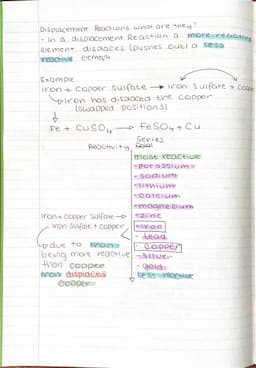 Displacement Reactions, what are they?
- In a displacement Reaction a more reactive
element displaces (pushes out) a less
reactive element
Example
Iron + Copper Sulfate → Iron Sulfate + Copper
iron has displaced the copper
(swapped positions)
Fe + CuSO4 → FeSO4 + Cu
Reactivity Series
most reactive
- potassium
- sodium
- lithium
- calcium
- magnesium
- zinc
- iron
- lead
- copper
- silver
- gold
least reactive
Iron + copper Sulfate →
Iron Sulfate + copper
due to iron
being more reactive
than copper
iron displaced
copper